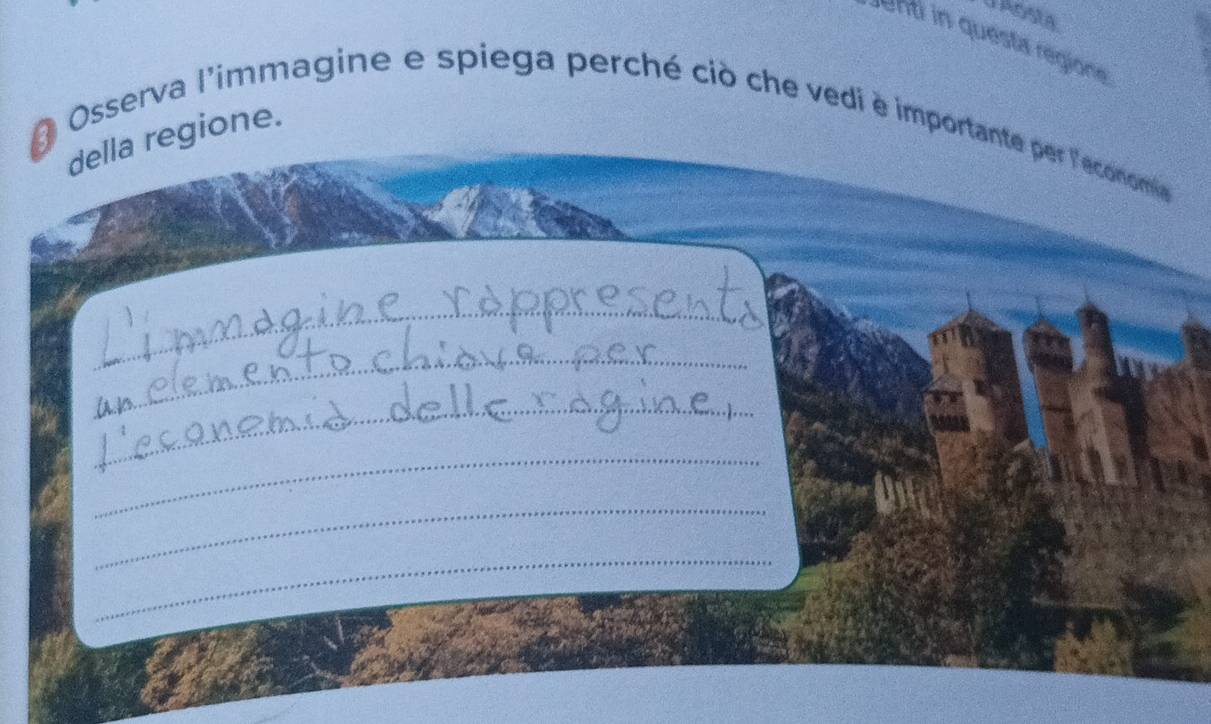 d'Aosta
senti in questa regione.
3 Osserva l'immagine e spiega perché ciò che vedi è importante per l'economia
della regione.
L'immagine rappresenta
un elemento chiave per
l'economia delle ragine,